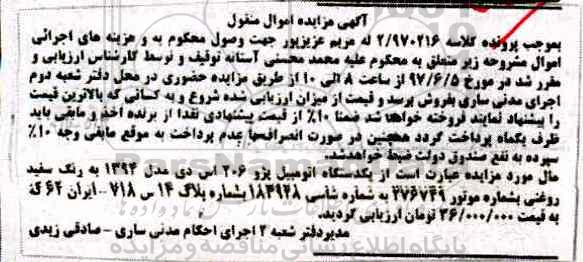 آگهی مزایده اموال منقول
بموجب پرونده کلاسه ۲/۹۷۰۲۱۶ له مریم عزیزپور جهت وصول محکوم به و هزینه های اجرائی
اموال مشروحه زیر متعلق به محکوم علیه محمد محسنی آستانه توقیف و توسط کارشناس ارزیابی و
مقرر شد در مورخ ۹۷/۶/۵ از ساعت ۸ الی ۱۰ از طریق مزایده حضوری در محل دفتر شعبه دوم
اجرای مدنی ساری بفروش برسد و قیمت از میزان ارزیابی شده شروع و به کسانی که بالاترین قیمت
را پیشنهاد نمایند فروخته خواهد شد ضمنا ۱۰٪ از قیمت پیشنهادی نقدا از برنده اخذ و مابقی باید
ظرف یکماه پرداخت گردد همچنین در صورت انصراف عدم پرداخت به موقع مابقی وجه ۱۰٪
سپرده به نفع صندوق دولت ضبط خواهدشد.
مال مورد مزایده عبارت است از یکدستگاه اتومبیل پژو ۲۰۶ اس دی مدل ۱۳۹۴ به رنگ سفید
روغنی بشماره موتور ۲۷۶۷۴۹ به شماره شاسی ۱۸۴۹۴۸ بشماره پلاک ۱۴ س ۷۱۸ - ایران ۶۴ که
به قیمت ۳۶/۰۰۰/۰۰۰ تومان ارزیابی گردید.
مدیردفتر شعبه ۲ اجرای احکام مدنی ساری - صادقی زیدی
پایگاه اطلاع رسانی مناقصه و مزایده